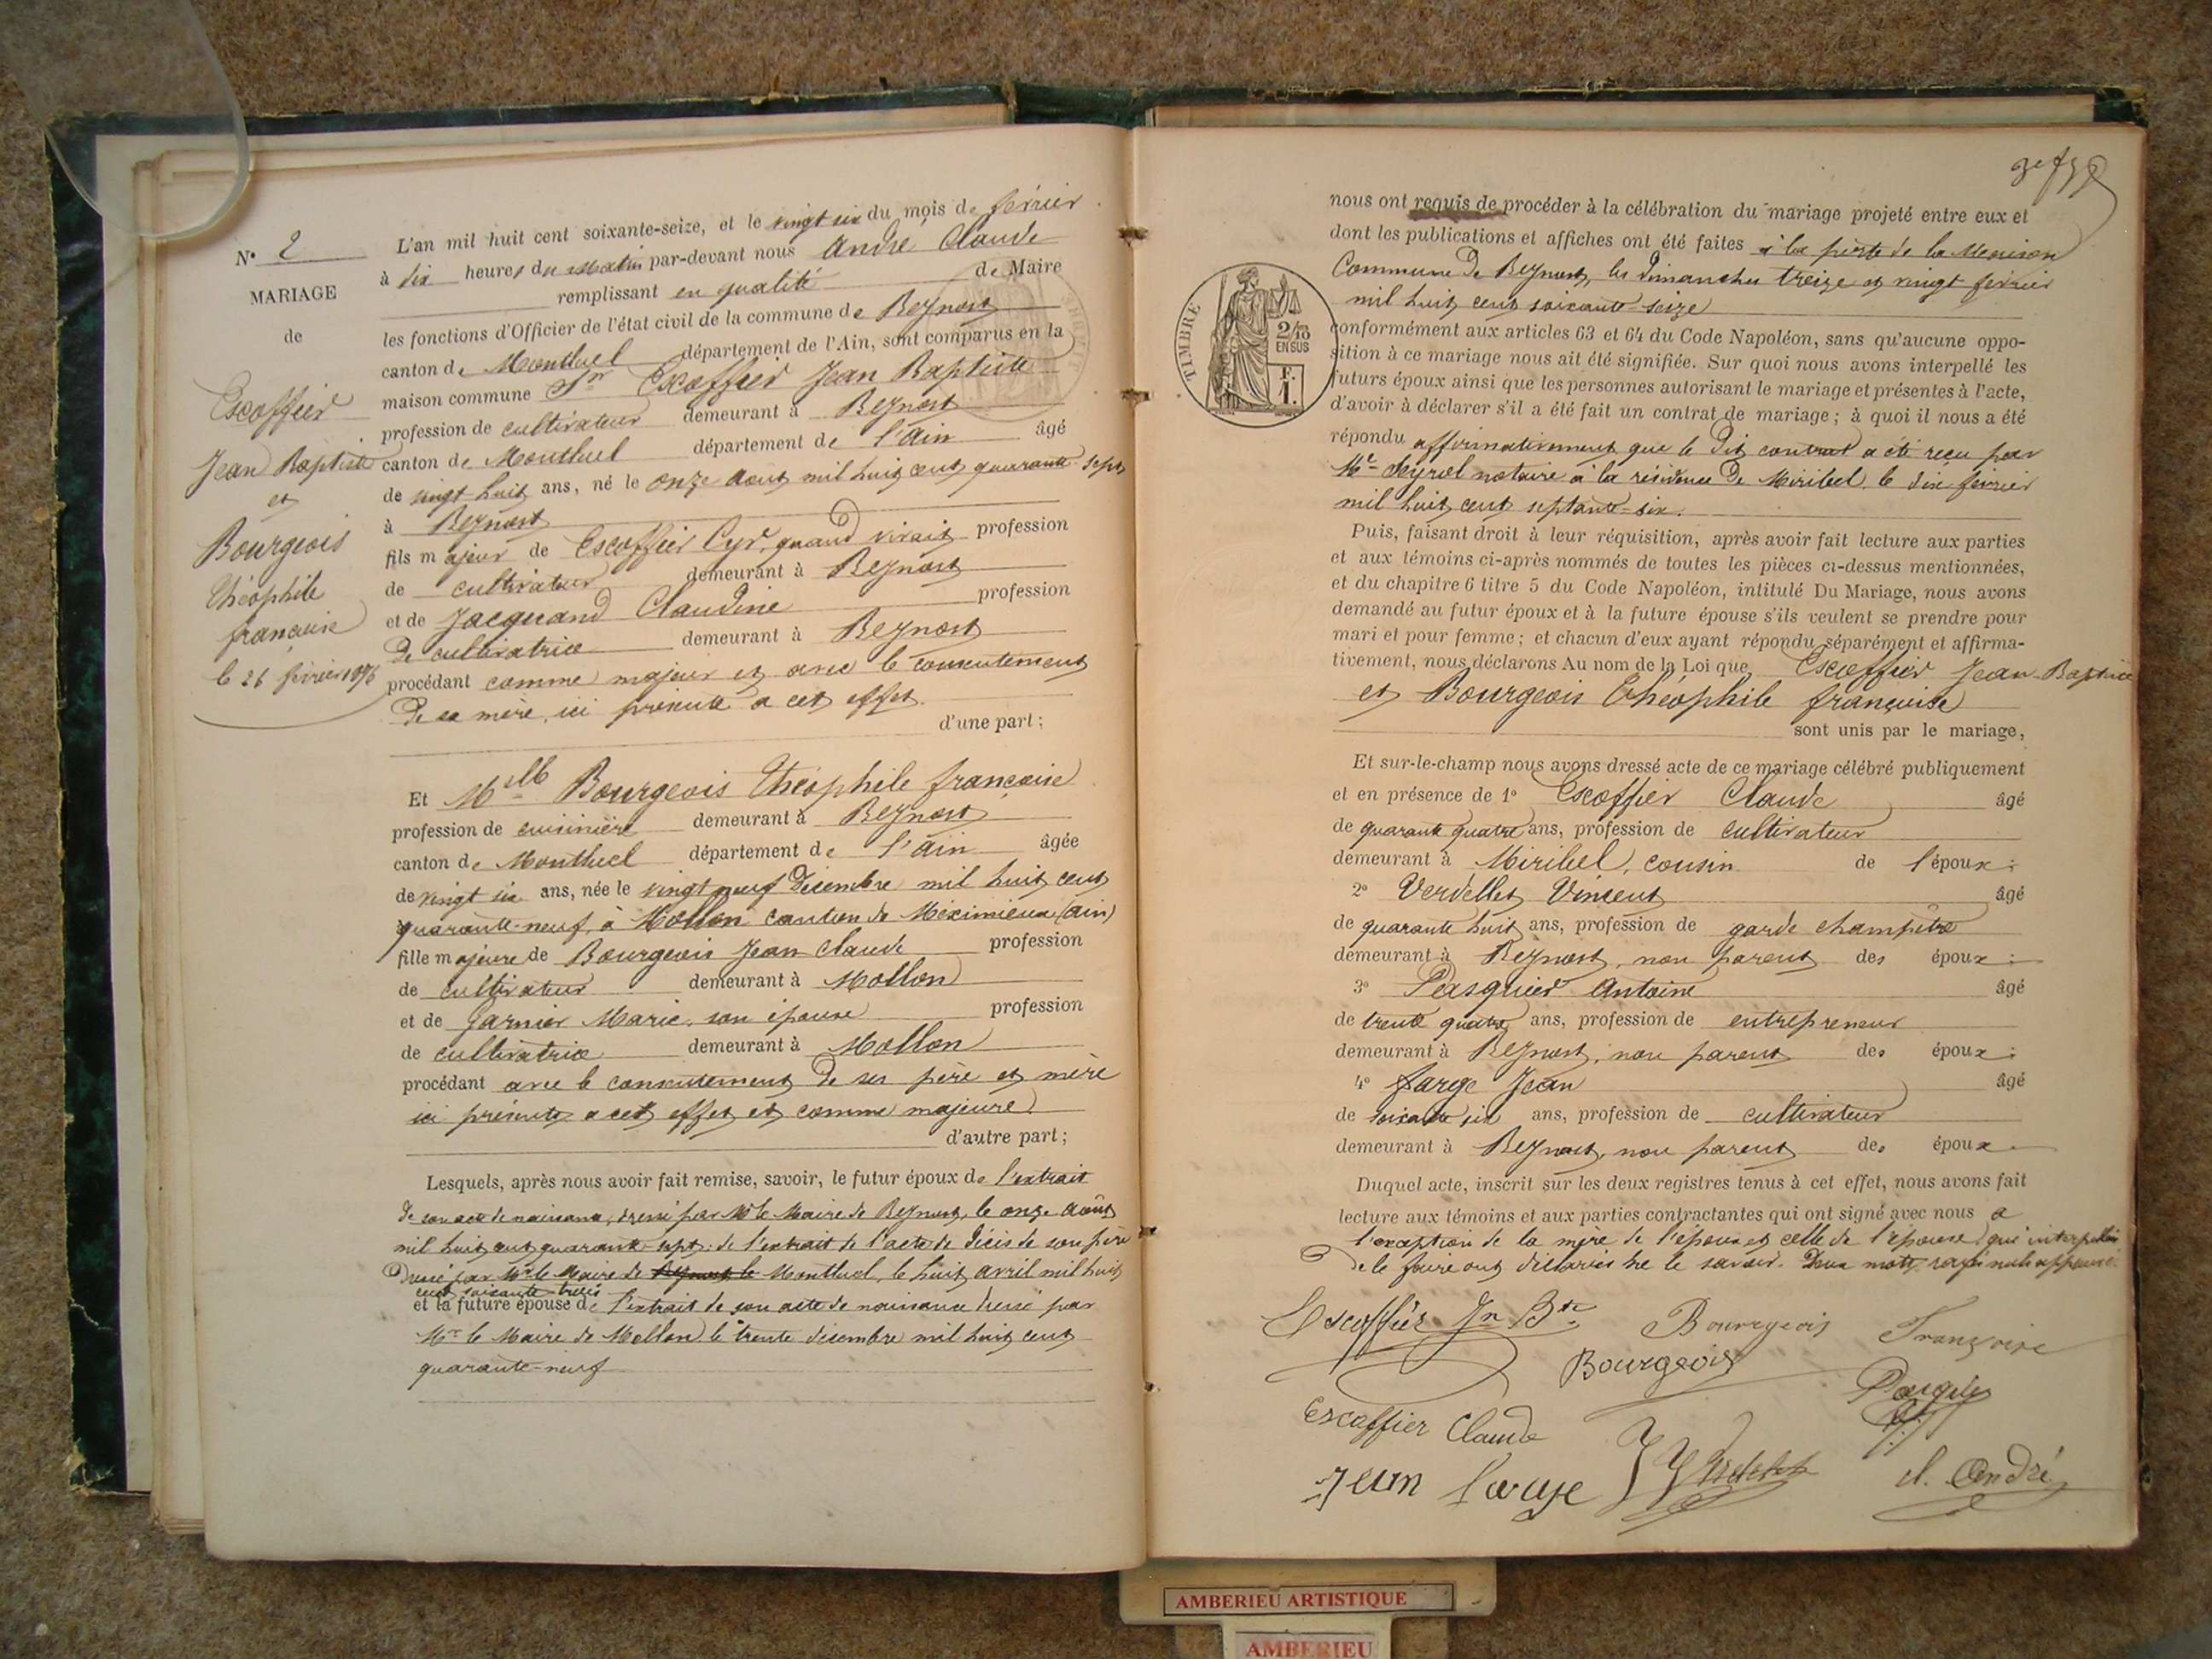 N° 2
MARIAGE
de
Escoffier
Jean Baptiste
et
Bourgeois
Théophile
françoise
le 26 février 1876
L'an mil huit cent soixante-seize, et le vingt six du mois de février
à dix heures du matin par-devant nous André Claude
remplissant en qualité de Maire
les fonctions d'Officier de l'état civil de la commune de Beynost
canton de Montluel département de l'Ain, sont comparus en la
maison commune Sr Escoffier Jean Baptiste
profession de cultivateur demeurant à Beynost
canton de Montluel département de l'Ain âgé
de vingt huit ans, né le onze aout mil huit cent quarante sept
à Beynost
fils majeur de Escoffier Cyr, quand vivait profession
de cultivateur demeurant à Beynost
et de Jacquand Claudine profession
de cultivatrice demeurant à Beynost
procédant comme majeur et avec le consentement
de sa mère, ici présente a cet effet.
d'une part;
Et Melle Bourgeois Théophile françoise
profession de cuisinière demeurant à Beynost
canton de Montluel département de l'Ain âgée
de vingt six ans, née le vingt neuf décembre mil huit cent
quarante-neuf, à Mollon canton de Méximieux (Ain)
fille majeure de Bourgeois Jean Claude profession
de cultivateur demeurant à Mollon
et de Garnier Marie, son épouse profession
de cultivatrice demeurant à Mollon
procédant avec le consentement de ses père et mère
ici présents a cet effet et comme majeure.
d'autre part;
Lesquels, après nous avoir fait remise, savoir, le futur époux de l'extrait
de son acte de naissance, dressé par Mr le Maire de Beynost, le onze août
mil huit cent quarante-sept: de l'extrait de l'acte de décès de son père
Dressé par Mr le Maire de Beynost le Montluel, le huit avril mil huit
cent soixante trois
et la future épouse de l'extrait de son acte de naissance dressé par
Mr le Maire de Mollon le trente décembre mil huit cent
quarante-neuf
nous ont requis de procéder à la célébration du mariage projeté entre eux et
dont les publications et affiches ont été faites à la porte de la Maison
Commune de Beynost, les dimanches treize et vingt février
mil huit cent soixante-seize
TIMBRE
2/10
EN SUS
F.
1.
conformément aux articles 63 et 64 du Code Napoléon, sans qu'aucune oppo-
sition à ce mariage nous ait été signifiée. Sur quoi nous avons interpellé les
futurs époux ainsi que les personnes autorisant le mariage et présentes à l'acte,
d'avoir à déclarer s'il a été fait un contrat de mariage; à quoi il nous a été
répondu affirmativement que le dit contrat a été reçu par
Me notaire à la résidence de Miribel, le dix février
mil huit cent septante-six.
Puis, faisant droit à leur réquisition, après avoir fait lecture aux parties
et aux témoins ci-après nommés de toutes les pièces ci-dessus mentionnées,
et du chapitre 6 titre 5 du Code Napoléon, intitulé Du Mariage, nous avons
demandé au futur époux et à la future épouse s'ils veulent se prendre pour
mari et pour femme; et chacun d'eux ayant répondu séparément et affirma-
tivement, nous déclarons Au nom de la Loi que Escoffier Jean-Baptiste
et Bourgeois Théophile françoise
sont unis par le mariage,
Et sur-le-champ nous avons dressé acte de ce mariage célébré publiquement
et en présence de 1° Escoffier Claude âgé
de quarante quatre ans, profession de cultivateur
demeurant à Miribel, cousin de l'époux;
2° Verdellet Vincent âgé
de quarante huit ans, profession de garde champêtre
demeurant à Beynost, non parent des époux;
3° Pasquier Antoine âgé
de trente quatre ans, profession de entrepreneur
demeurant à Beynost, non parent des époux;
4° farge Jean âgé
de soixante six ans, profession de cultivateur
demeurant à Beynost, non parent des époux
Duquel acte, inscrit sur les deux registres tenus à cet effet, nous avons fait
lecture aux témoins et aux parties contractantes qui ont signé avec nous a
l'exception de la mère de l'époux et celle de l'épouse, qui interpellées
de le faire ont déclarées ne le savoir. Deux mots rayés nuls approuvés
Escoffier Jn Bte Bourgeois Françoise
Bourgeois
Escoffier Claude
Jean farge
Cl. André
AMBERIEU ARTISTIQUE
AMBERIEU